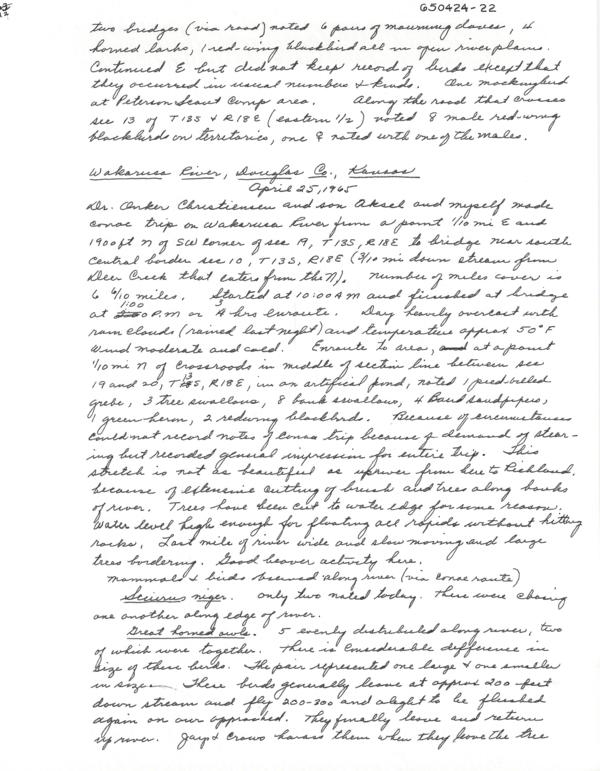 650424-22
two bridges (via road) noted 6 pairs of mourning doves, 4
horned larks, 1 red-wing blackbird all in open river plains.
Continued E but did not keep record of birds except that
they occurred in usual numbers & kinds. One mockingbird
at Peterson Scout Camp area. Along the road that crosses
sec 13 of T13S & R18E (eastern 1/2) noted 8 male red-wing
blackbirds on territories, one ♀ noted with one of the males.
Wakarusa River, Douglas Co., Kansas
April 25, 1965
Dr. Anker Christiensen and son Aksel and myself made
canoe trip on Wakarusa River from a point 1/10 mi E and
1900 ft N of SW corner of sec 19, T13S, R18E to bridge near south
central border sec 10, T13S, R18E (3/10 mi down stream from
Deer Creek that enters from the N). Number of miles cover is
6 6/10 miles. Started at 10:00 AM and finished at bridge
at 1:00 P.M or hrs enroute. Day heavily overcast with
rain clouds (rained last night) and temperature approx 50°F
Wind moderate and cold. Enroute to area, at a point
1/10 mi N of crossroads in middle of section line between sec
19 and 20, T13S, R18E, in an artificial pond, noted 1 pied-billed
grebe, 3 tree swallows, 8 bank swallows, 4 Baird sandpipers,
1 green heron, 2 redwing blackbirds. Because of circumstances
could not record notes of canoe trip because of demand of steer-
ing but recorded general impression for entire trip. This
stretch is not as beautiful as upriver from here to Richland,
because of extensive cutting of brush and trees along banks
of river. Trees have been cut to water edge for some reason.
Water level high enough for floating all rapids without hitting
rocks. Last mile of river wide and slow moving and large
trees bordering. Good beaver activity here.
Mammals & birds observed along river (via canoe route)
Sciurus niger. Only two noted today. These were chasing
one another along edge of river.
Great horned owls. 5 evenly distributed along river, two
of which were together. There is considerable difference in
size of these birds. The pair represented one large & one smaller
in size. These birds generally leave at approx 200 feet
down stream and fly 200-300 and alight to be flushed
again on our approached. They finally leave and return
up river. Jays & crows harass them when they leave the tree